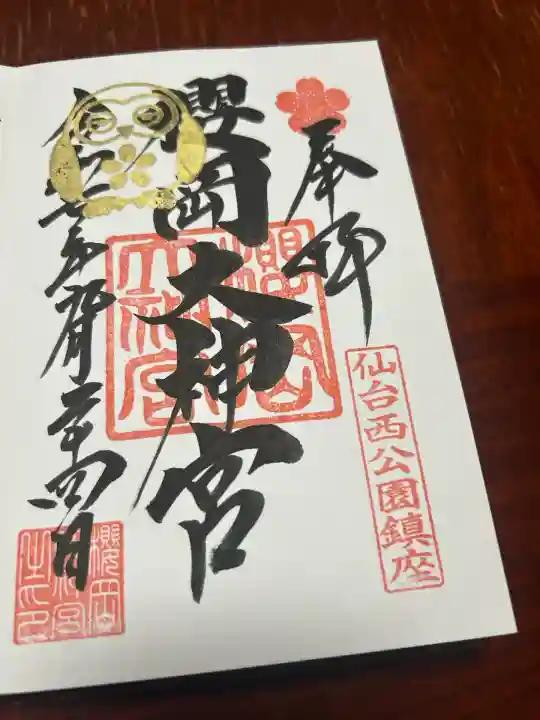 奉拝
仙台西公園鎮座
櫻岡大神宮
櫻岡
大神宮
令和七年 月二十四日
櫻岡
大神宮
之印